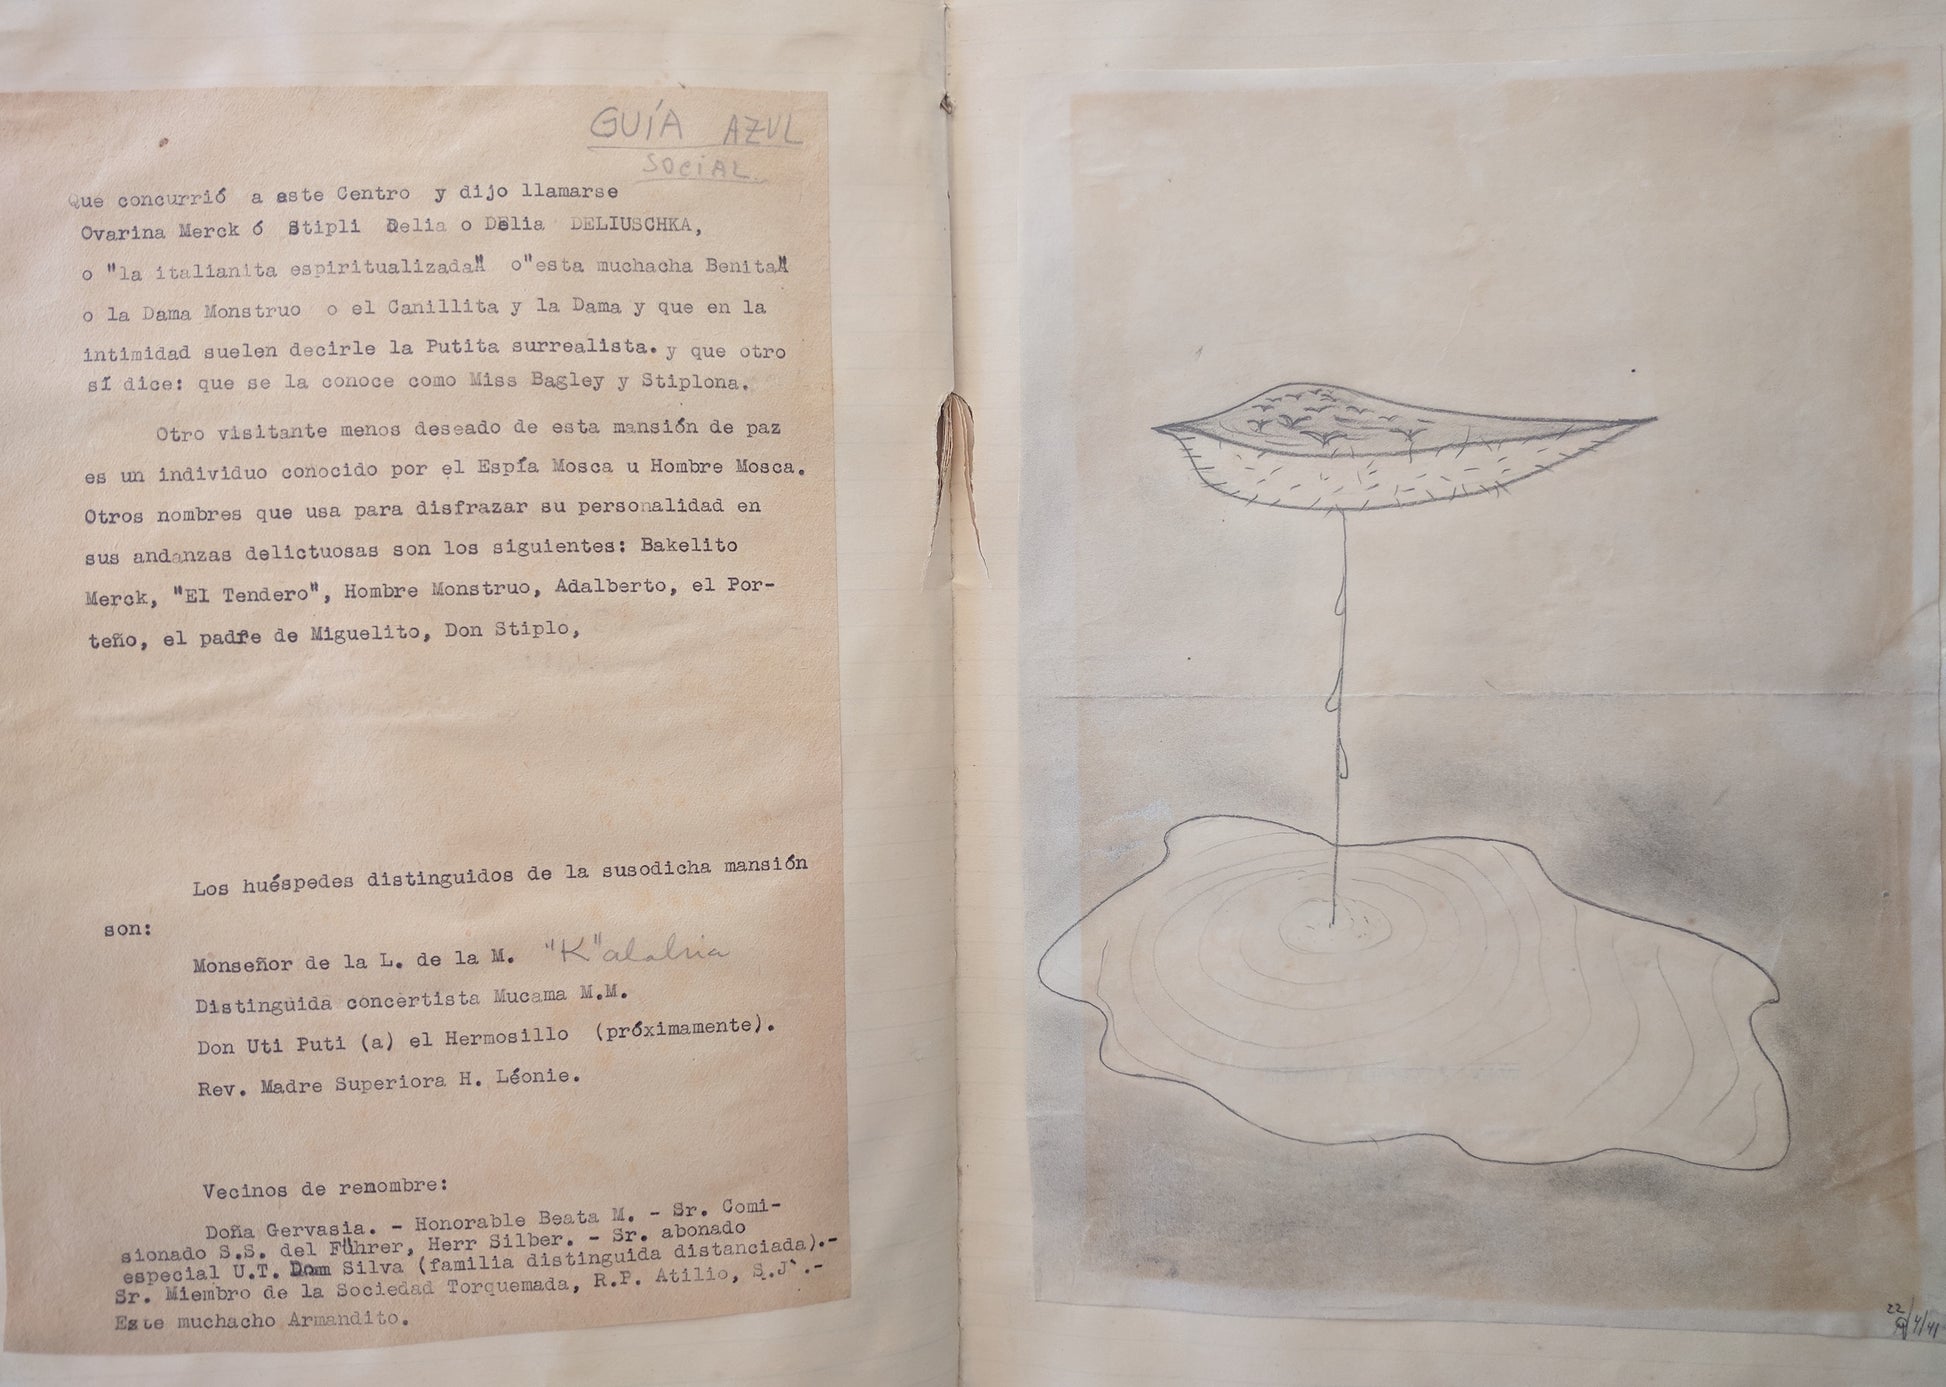 GUÍA AZUL
SOCIAL.
Que concurrió a este Centro y dijo llamarse
Ovarina Merck ó Stipli Delia o Delia DELIUSCHKA,
o "la italianita espiritualizada" o"esta muchacha Benita"
o la Dama Monstruo o el Canillita y la Dama y que en la
intimidad suelen decirle la Putita surrealista. y que otro
sí dice: que se la conoce como Miss Bagley y Stiplona.
Otro visitante menos deseado de esta mansión de paz
es un individuo conocido por el Espía Mosca u Hombre Mosca.
Otros nombres que usa para disfrazar su personalidad en
sus andanzas delictuosas son los siguientes: Bakelito
Merck, "El Tendero", Hombre Monstruo, Adalberto, el Por-
teño, el padre de Miguelito, Don Stiplo,
Los huéspedes distinguidos de la susodicha mansión
son:
Monseñor de la L. de la M. "K"alabria
Distinguida concertista Mucama M.M.
Don Uti Puti (a) el Hermosillo (próximamente).
Rev. Madre Superiora H. Léonie.
Vecinos de renombre:
Doña Gervasia. - Honorable Beata M. - Sr. Comi-
sionado S.S. del Führer, Herr Silber. - Sr. abonado
especial U.T. Dom Silva (familia distinguida distanciada).-
Sr. Miembro de la Sociedad Torquemada, R.P. Atilio, S.J.-
Este muchacho Armandito.
22/4/41